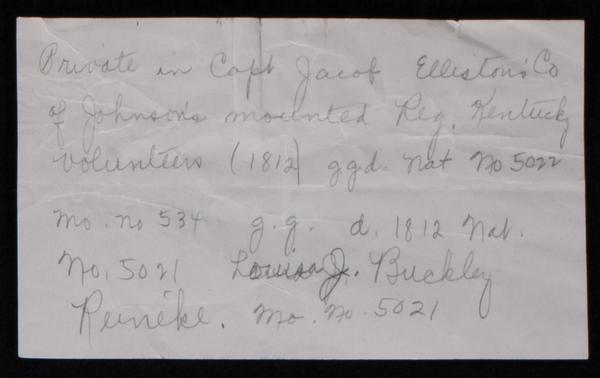 Private in Capt Jacob Elliston's Co
of Johnson's mounted Reg. Kentucky
volunteers (1812) ggd. Nat No 5022
Mo. no 534 g.g. d. 1812 Nat.
No. 5021 Louisa J. Buckley
Reineke. Mo. No. 5021